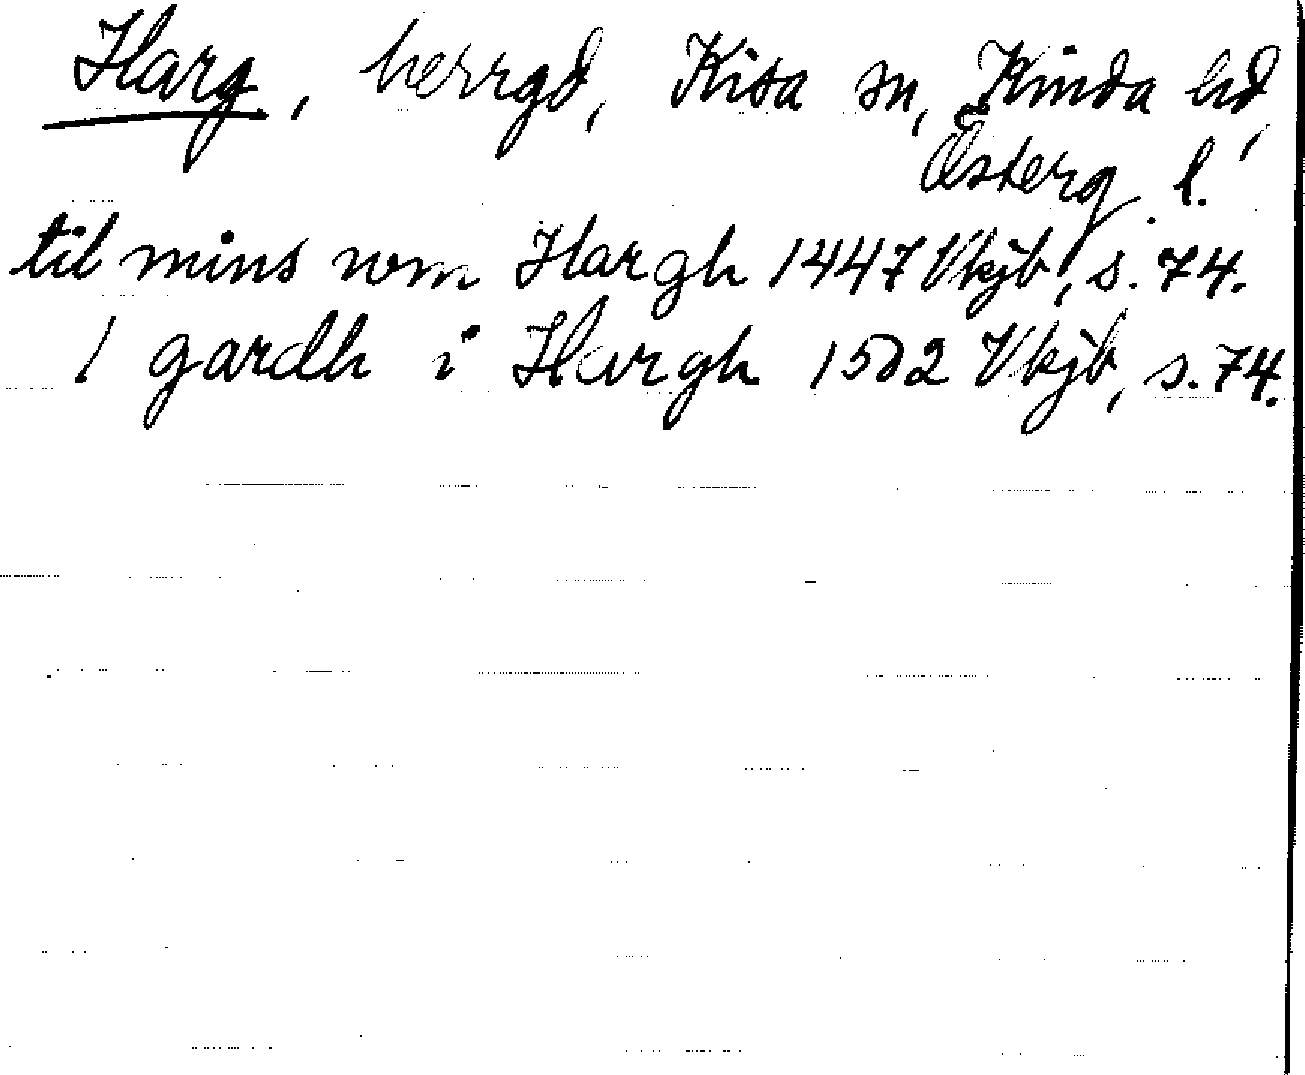 Harg, herrgd, Kisa sn, Kinda hd,
Österg. l.
til mins som Hargh 1447 Vkjb, s. 74.
1 gardh i Hargh 1502 Vkjb, s. 74.